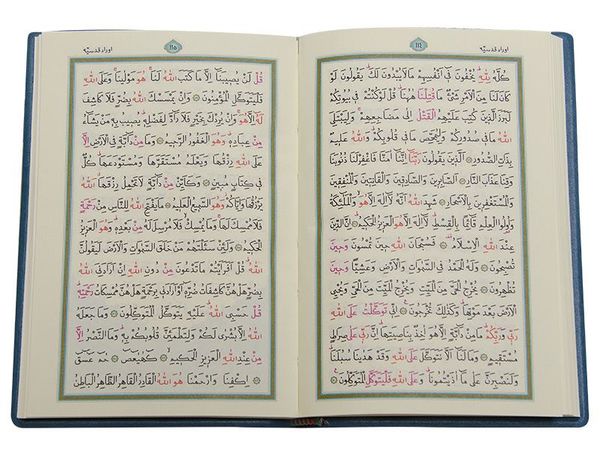 اوراد قدسيه
١١٤
كُلَّهُ لِلّٰهِ يُخْفُونَ فِي أَنْفُسِهِمْ مَا لَا يُبْدُونَ لَكَ يَقُولُونَ لَوْ
كَانَ لَنَا مِنَ الْأَمْرِ شَيْءٌ مَا قُتِلْنَا هٰهُنَا قُلْ لَوْ كُنْتُمْ فِي بُيُوتِكُمْ
لَبَرَزَ الَّذِينَ كُتِبَ عَلَيْهِمُ الْقَتْلُ إِلَى مَضَاجِعِهِمْ وَلِيَبْتَلِيَ
اللّٰهُ مَا فِي صُدُورِكُمْ وَلِيُمَحِّصَ مَا فِي قُلُوبِكُمْ وَاللّٰهُ عَلِيمٌ
بِذَاتِ الصُّدُورِ الَّذِينَ يَقُولُونَ رَبَّنَا إِنَّنَا آمَنَّا فَاغْفِرْ لَنَا ذُنُوبَنَا
وَقِنَا عَذَابَ النَّارِ الصَّابِرِينَ وَالصَّادِقِينَ وَالْقَانِتِينَ وَالْمُنْفِقِينَ
وَالْمُسْتَغْفِرِينَ بِالْأَسْحَارِ شَهِدَ اللّٰهُ أَنَّهُ لَا إِلٰهَ إِلَّا هُوَ وَالْمَلٰئِكَةُ
وَأُولُوا الْعِلْمِ قَائِمًا بِالْقِسْطِ لَا إِلٰهَ إِلَّا هُوَ الْعَزِيزُ الْحَكِيمُ إِنَّ الدِّينَ
عِنْدَ اللّٰهِ الْإِسْلَامُ فَسُبْحَانَ اللّٰهِ حِينَ تُمْسُونَ وَحِينَ
تُصْبِحُونَ وَلَهُ الْحَمْدُ فِي السَّمٰوَاتِ وَالْأَرْضِ وَعَشِيًّا وَحِينَ
تُظْهِرُونَ يُخْرِجُ الْحَيَّ مِنَ الْمَيِّتِ وَيُخْرِجُ الْمَيِّتَ مِنَ الْحَيِّ وَيُحْيِي
الْأَرْضَ بَعْدَ مَوْتِهَا وَكَذٰلِكَ تُخْرَجُونَ إِنِّي تَوَكَّلْتُ عَلَى اللّٰهِ
رَبِّي وَرَبِّكُمْ مَا مِنْ دَابَّةٍ إِلَّا هُوَ آخِذٌ بِنَاصِيَتِهَا إِنَّ رَبِّي عَلَى صِرَاطٍ
مُسْتَقِيمٍ وَمَا لَنَا أَلَّا نَتَوَكَّلَ عَلَى اللّٰهِ وَقَدْ هَدٰينَا سُبُلَنَا
وَلَنَصْبِرَنَّ عَلَى مَا آذَيْتُمُونَا وَعَلَى اللّٰهِ فَلْيَتَوَكَّلِ الْمُتَوَكِّلُونَ
اوراد قدسيه
١١٥
قُلْ لَنْ يُصِيبَنَا إِلَّا مَا كَتَبَ اللّٰهُ لَنَا هُوَ مَوْلٰينَا وَعَلَى اللّٰهِ
فَلْيَتَوَكَّلِ الْمُؤْمِنُونَ وَإِنْ يَمْسَسْكَ اللّٰهُ بِضُرٍّ فَلَا كَاشِفَ
لَهُ إِلَّا هُوَ وَإِنْ يُرِدْكَ بِخَيْرٍ فَلَا رَادَّ لِفَضْلِهِ يُصِيبُ بِهِ مَنْ يَشَاءُ
مِنْ عِبَادِهِ وَهُوَ الْغَفُورُ الرَّحِيمُ وَمَا مِنْ دَابَّةٍ فِي الْأَرْضِ إِلَّا
عَلَى اللّٰهِ رِزْقُهَا وَيَعْلَمُ مُسْتَقَرَّهَا وَمُسْتَوْدَعَهَا كُلٌّ
فِي كِتَابٍ مُبِينٍ وَكَأَيِّنْ مِنْ دَابَّةٍ لَا تَحْمِلُ رِزْقَهَا اللّٰهُ
يَرْزُقُهَا وَإِيَّاكُمْ وَهُوَ السَّمِيعُ الْعَلِيمُ مَا يَفْتَحِ اللّٰهُ لِلنَّاسِ مِنْ رَحْمَةٍ
فَلَا مُمْسِكَ لَهَا وَمَا يُمْسِكْ فَلَا مُرْسِلَ لَهُ مِنْ بَعْدِهِ وَهُوَ الْعَزِيزُ
الْحَكِيمُ وَلَئِنْ سَأَلْتَهُمْ مَنْ خَلَقَ السَّمٰوَاتِ وَالْأَرْضَ لَيَقُولُنَّ
اللّٰهُ قُلْ أَفَرَأَيْتُمْ مَا تَدْعُونَ مِنْ دُونِ اللّٰهِ إِنْ أَرَادَنِيَ اللّٰهُ
بِضُرٍّ هَلْ هُنَّ كَاشِفَاتُ ضُرِّهِ أَوْ أَرَادَنِي بِرَحْمَةٍ هَلْ هُنَّ مُمْسِكَاتُ رَحْمَتِهِ
قُلْ حَسْبِيَ اللّٰهُ عَلَيْهِ يَتَوَكَّلُ الْمُتَوَكِّلُونَ وَمَا جَعَلَهُ
اللّٰهُ إِلَّا بُشْرٰى لَكُمْ وَلِتَطْمَئِنَّ قُلُوبُكُمْ بِهِ وَمَا النَّصْرُ إِلَّا
مِنْ عِنْدِ اللّٰهِ الْعَزِيزِ الْحَكِيمِ كٓهٰيٰعٓصٓ حٰمٓ عٓسٓقٓ
اِكْفِنَا وَارْحَمْنَا هُوَ اللّٰهُ الْقَادِرُ الْقَاهِرُ الظَّاهِرُ الْبَاطِنُ